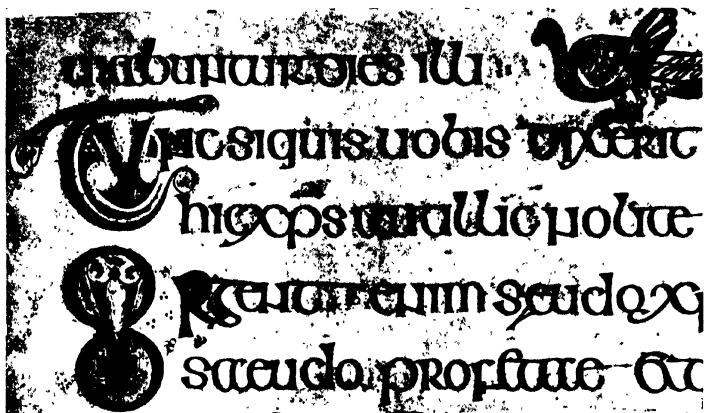 uiabuntur dies illi
Tunc si quis uobis dixerit
hic xps aut illic nolite
Surgent enim seudo xp
saeudo profetae et